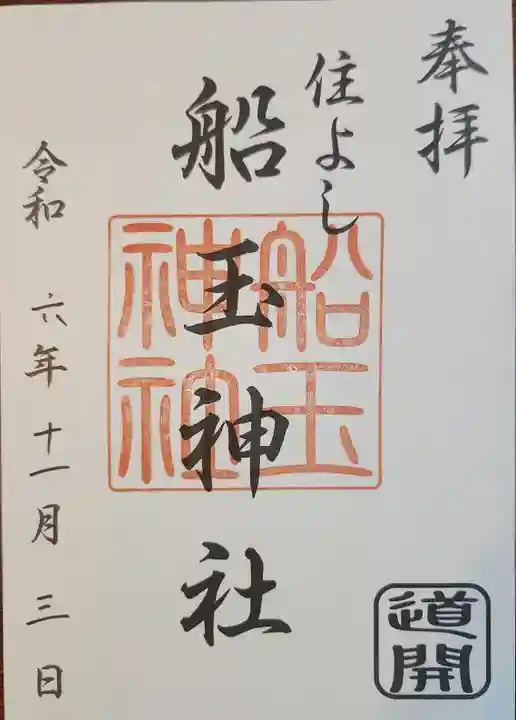 奉拝
住よし
船玉神社
船玉
神社
令和 六年 十一月 三日
道開